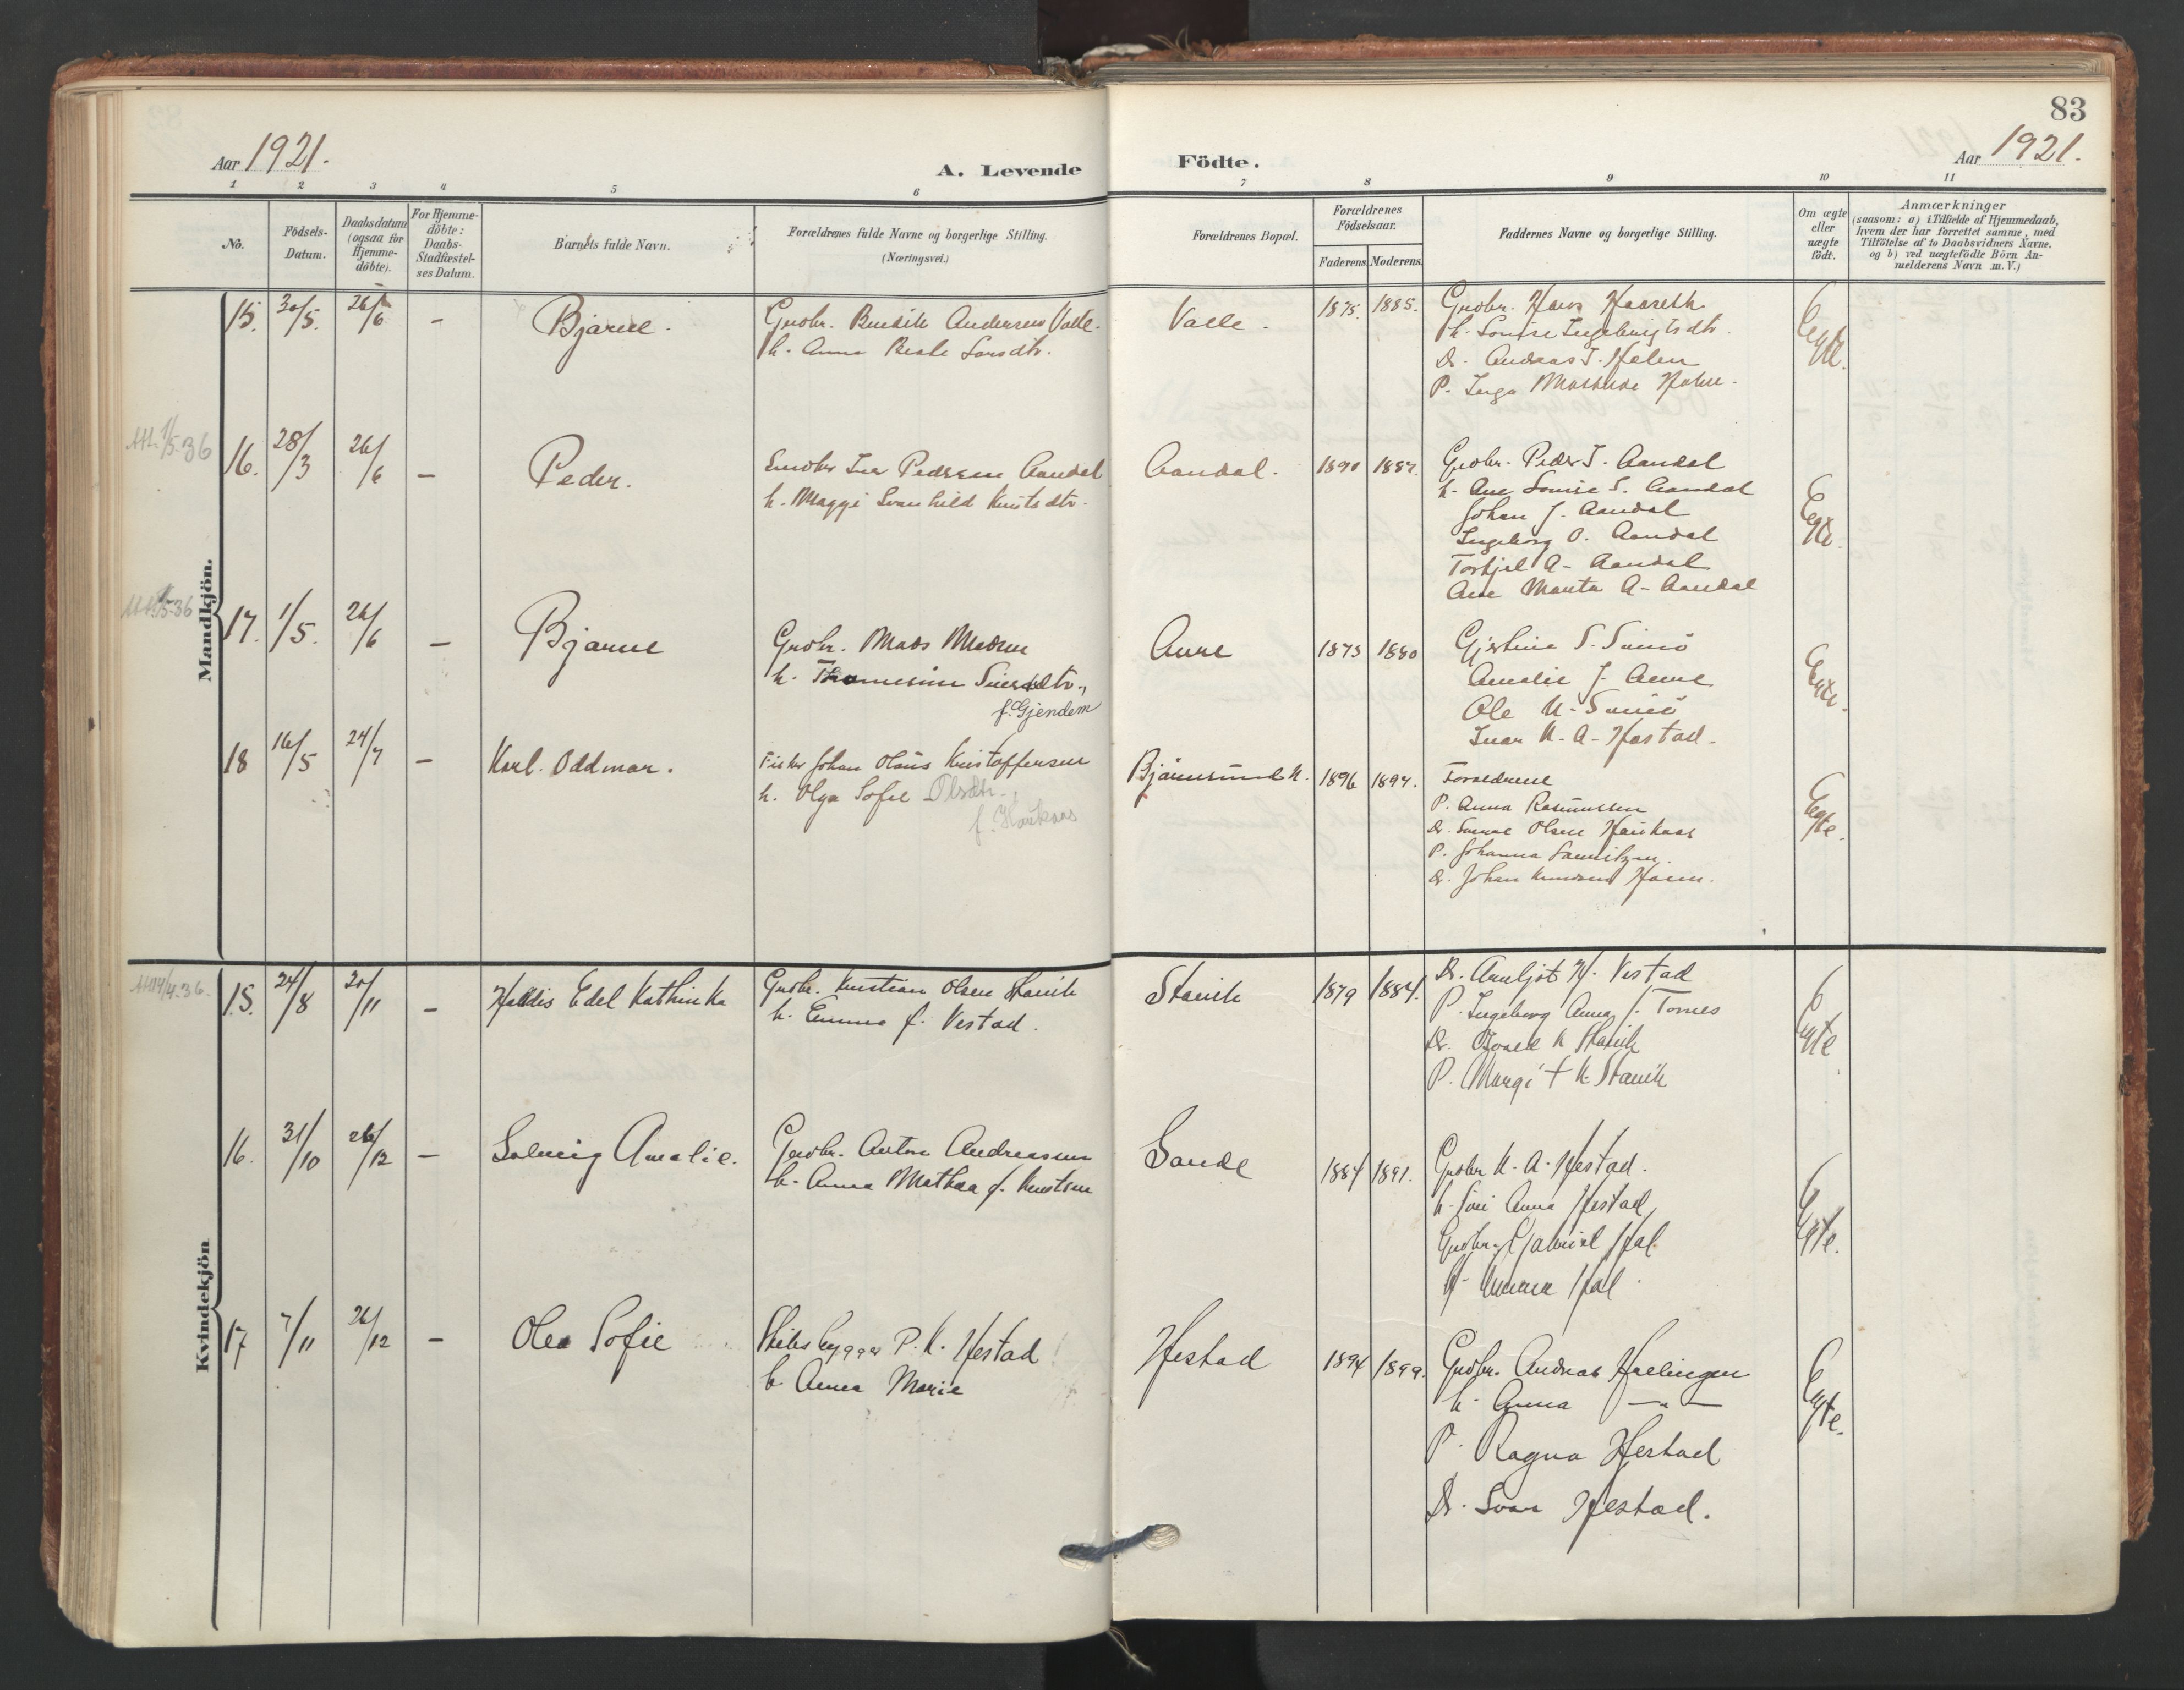 83
Aar 1921.
A. Levende
Födte.
Aar 1921.
1 2 3 4 5 6 7 8 9 10 11
No.
Födsels-
Datum.
Daabsdatum
(ogsaa for
Hjemme-
döbte).
For Hjemme-
döbte:
Daabs-
Stadfæstel-
ses Datum.
Barnets fulde Navn.
Forældrenes fulde Navne og borgerlige Stilling.
(Næringsvei.)
Forældrenes Bopæl.
Forældrenes
Födselsaar.
Faderens Moderens
Faddernes Navne og borgerlige Stilling.
Om ægte
eller
uægte
födt.
Anmærkninger
(saasom: a) i Tilfælde af Hjemmedaab,
hvem der har forrettet samme, med
Tilföielse af to Daabsvidners Navne.
og b) ved uægtefödte Börn An-
melderens Navn m. V.)
Mandkjön.
15. 30/5. 26/6 - Bjarne. Gaardbr. Andersen Valle. Valle. 1875. 1885. Gaardbr. Hans
h. Anna Beate Larsdtr.
h. Louise
Dr. Andreas J. Helen
P. Inga
Ægte.
1/5-36
16. 28/3 26/6 - Peder. Iver Pedersen Aandal Aandal. 1890 1887. Gaardbr. Peder J. Aandal
h. Maggi Svanhild Knutsdtr.
h. Ane Louise S. Aandal
Johan J. Aandal
Ingeborg O. Aandal
Torkjel A- Aandal
Ane Marta A- Aandal
Ægte.
1/5-36
17. 1/5. 26/6 - Bjarne Gaardbr. Mads Madsen Aure 1873 1880 Gjertine S. Sunnö
h. Thomasine Sivertsdtr.,
f. Gjendem
Amalie J. Aure
Ole K. Sunnö
Ivar K. A. Hestad.
Ægte.
18 16/5 24/7 - Karl. Oddmar. Fisker Johan Olaus Kristoffersen Bjørnsund N. 1896 1897. Foreldrene
h. Olga Sofie Olsdtr.,
f. Haukaas
P. Anna Rasmussen
Dr. Olsen Haukaas
P. Johanna
Dr. Johan Knudsen
Ægte.
Kvindekjön
14/4-36.
15. 24/8 20/11 - Haldis Edel Kathinka Gaardbr. Kristian Olsen Stavik Stavik 1879 1884. Dr. Arnljot H. Vestad
h. Emma f. Vestad.
P. Ingeborg Anna J. Tornes
Dr. K Stavik
P. Margit K. Stavik
Ægte
16. 31/10 26/12 - Solveig Amalie. Gaardbr. Anton Andreassen Sande 1884 1891. Gaardbr K. A. Hestad.
h. Anna Mathea f. Knutsen
h. Anna Hestad
Gaardbr. Gabriel Hol.
h. Hol.
Ægte.
17 7/11 26/12 - Olea Sofie Skibsbygger P. K. Hestad Hestad 1894 1899. Gaardbr. Andreas
h Anna Marie
h. Anna —"—
P. Ragna Hestad
Dr. Hestad.
Ægte.